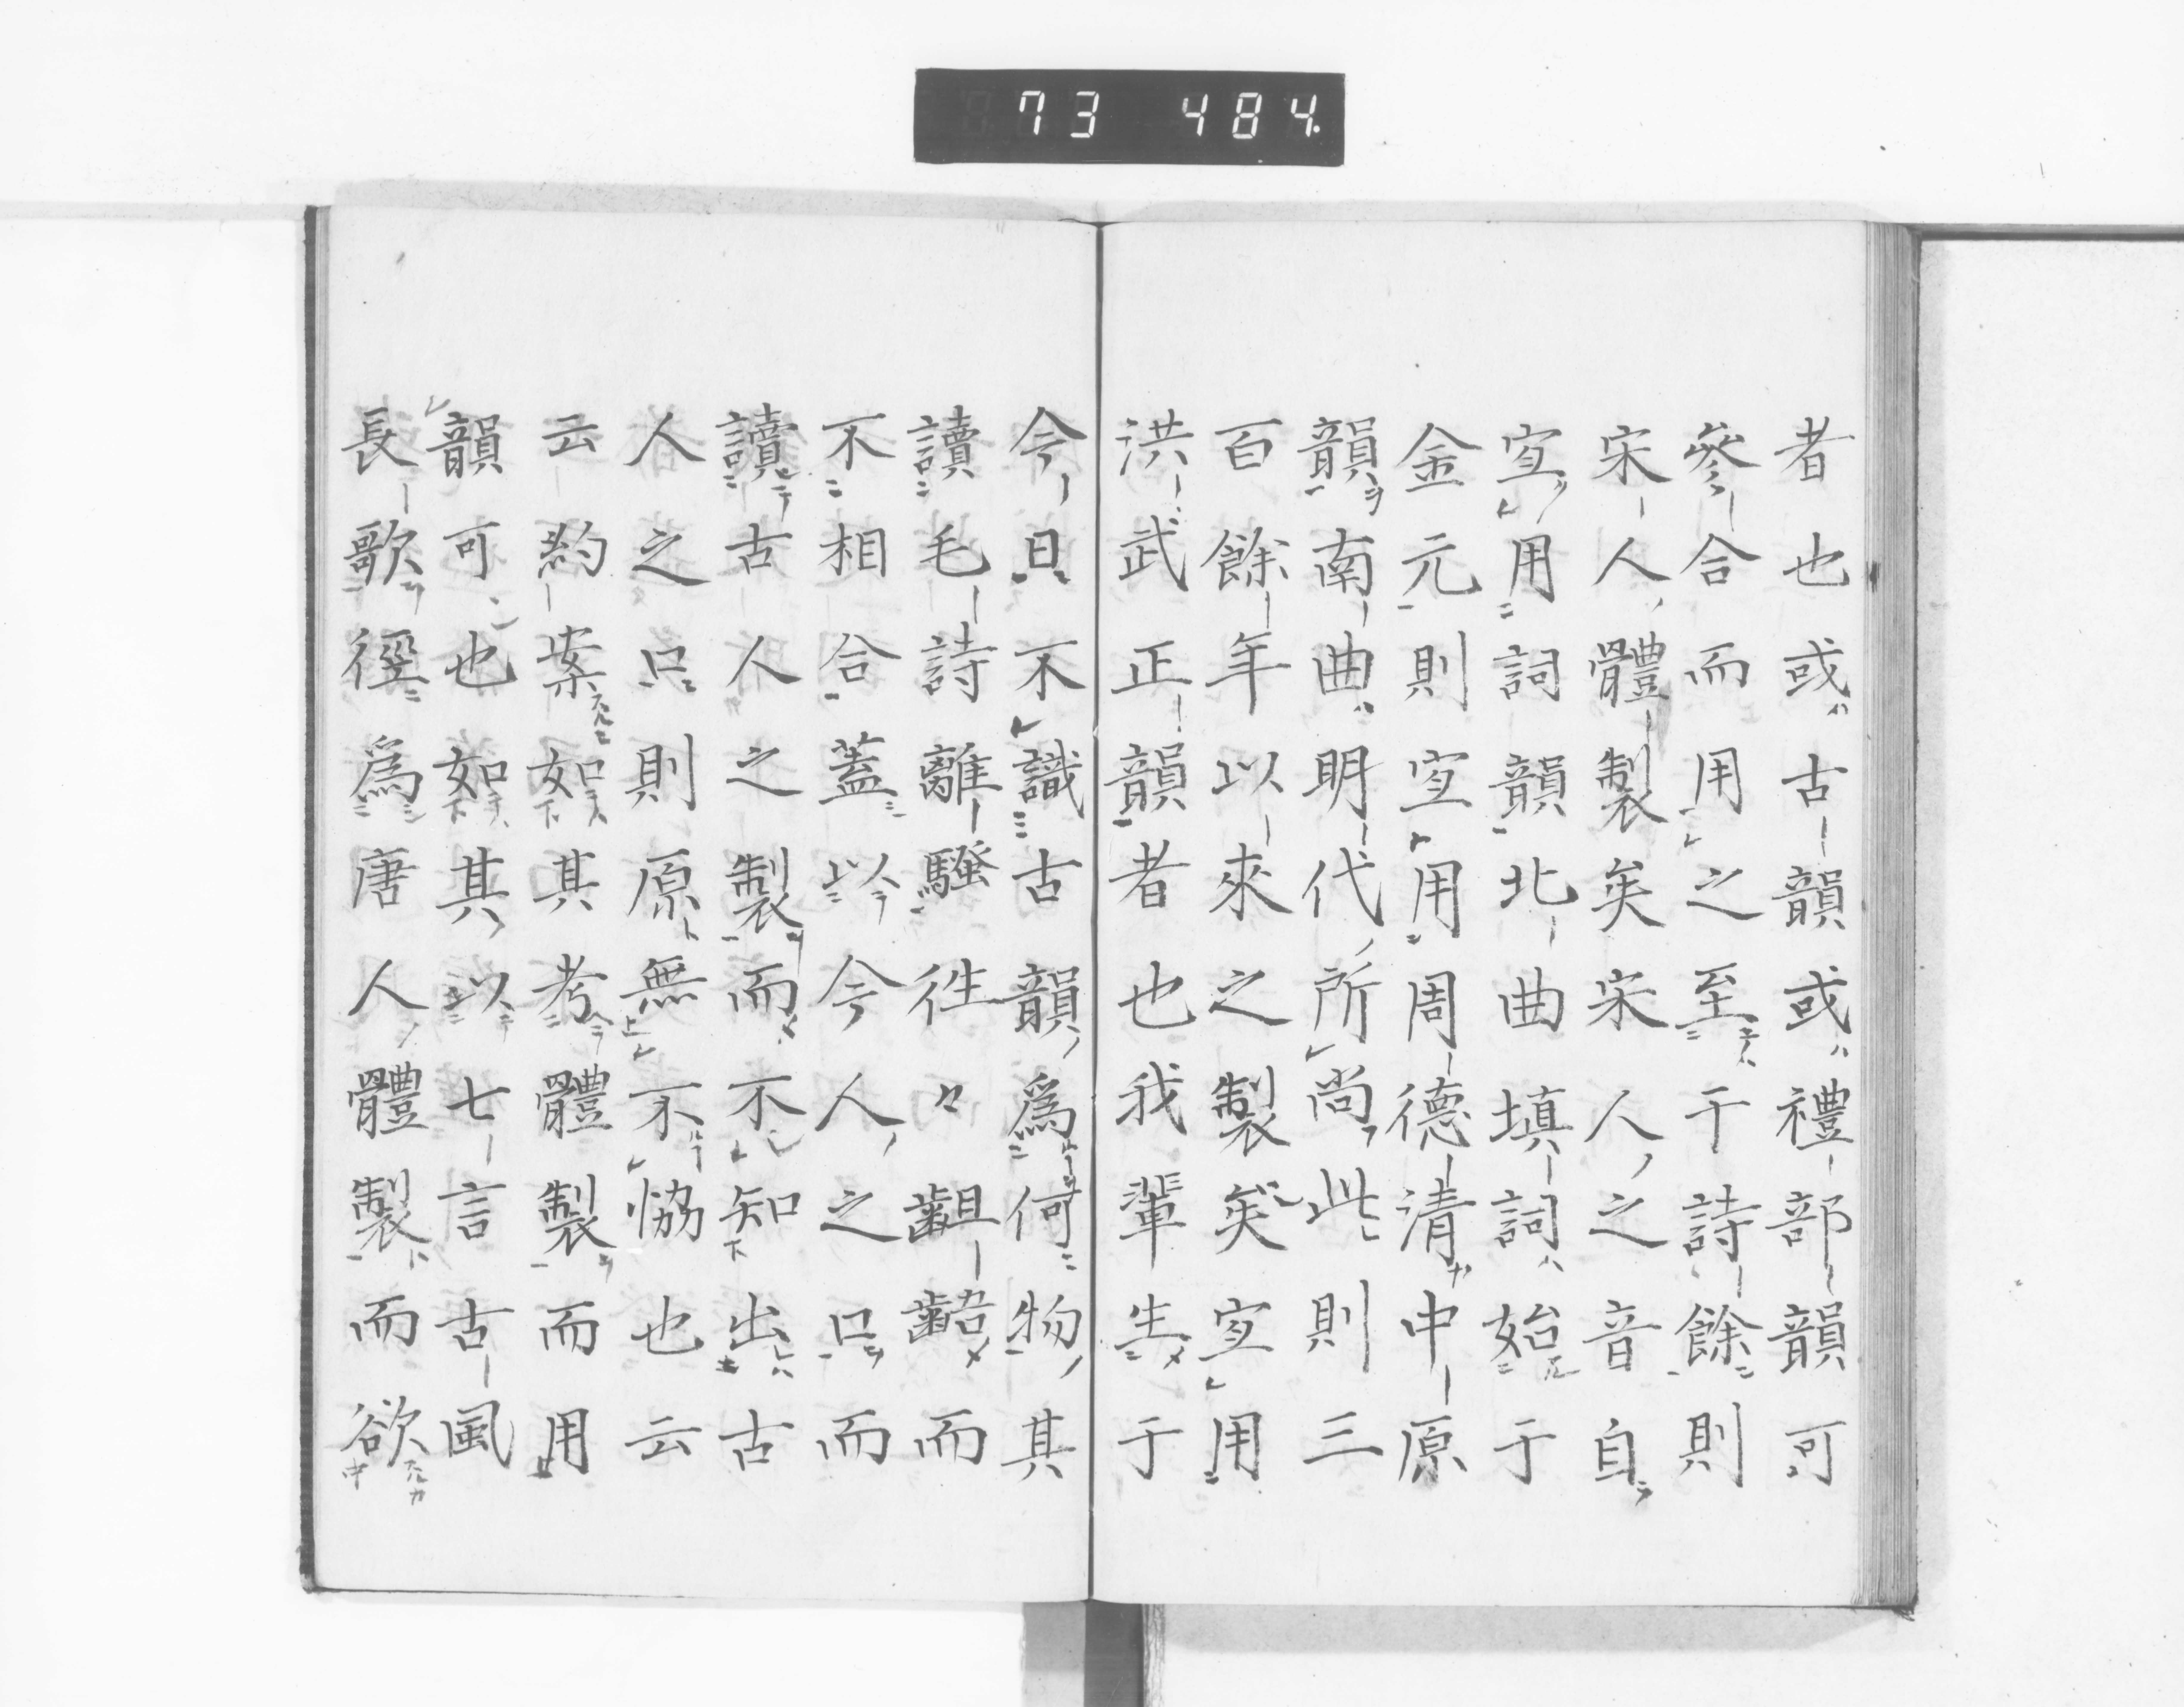 73 484.
者也或古韻或禮部韻可
參合而用之至于詩餘則
宋人體製矣宋人之音自
宜用詞韻北曲填詞始于
金元則宜用周德清中原
韻南曲明代所尚此則三
百餘年以來之製矣宜用
洪武正韻者也我輩生于
今日不識古韻爲何物其
讀毛詩離騷徃々齟齬而
不相合蓋以今人之口而
讀古人之製而不知出古
人之口則原無不恊也云
云約案如其考體製而用
韻可也如其以七言古風
長歌徑爲唐人體製而欲